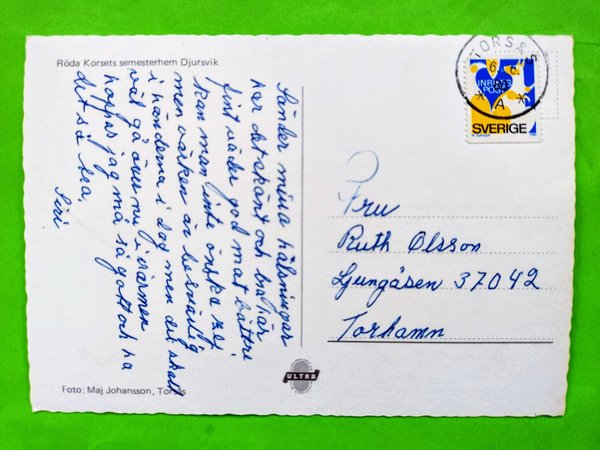 Röda Korsets semesterhem Djursvik
Sänder mina hälsningar
har det skönt och bra här
fint väder god mat bättre
kan man inte önska sej
men värken är besvärlig
i händerna i dag men det skall
väl gå över nu i värmen
hoppas jag må så gott och ha
det så bra.
Siri
Foto: Maj Johansson, Torsås
ULTRA
TORSÅS
A
INRIKES
POST
SVERIGE
Fru
Ruth Olsson
Ljungåsen 37042
Torhamn